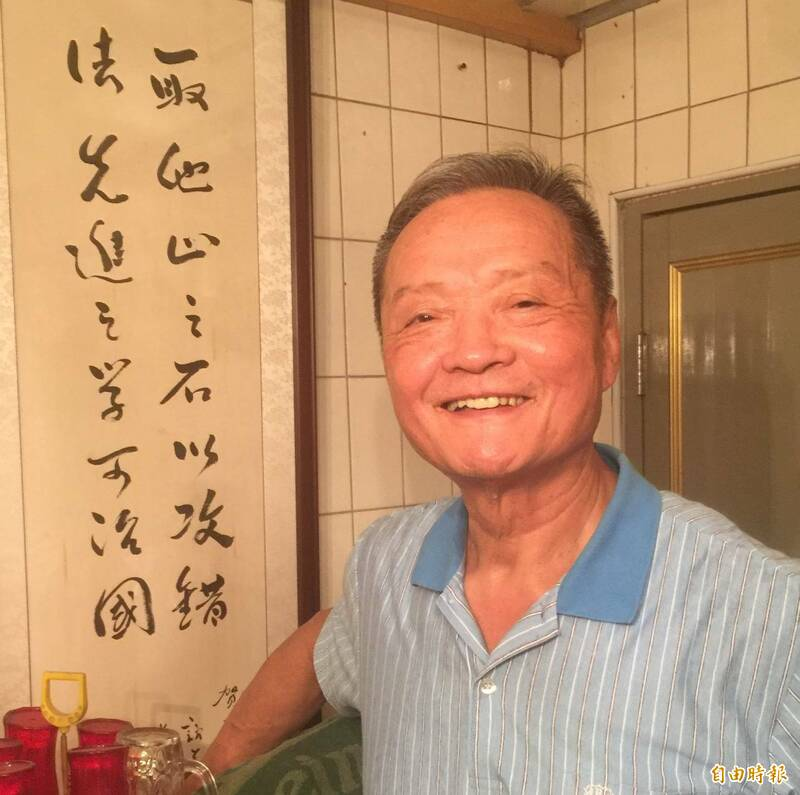 取他山之石以攻錯
法先進之学可治國
賀
自由時報